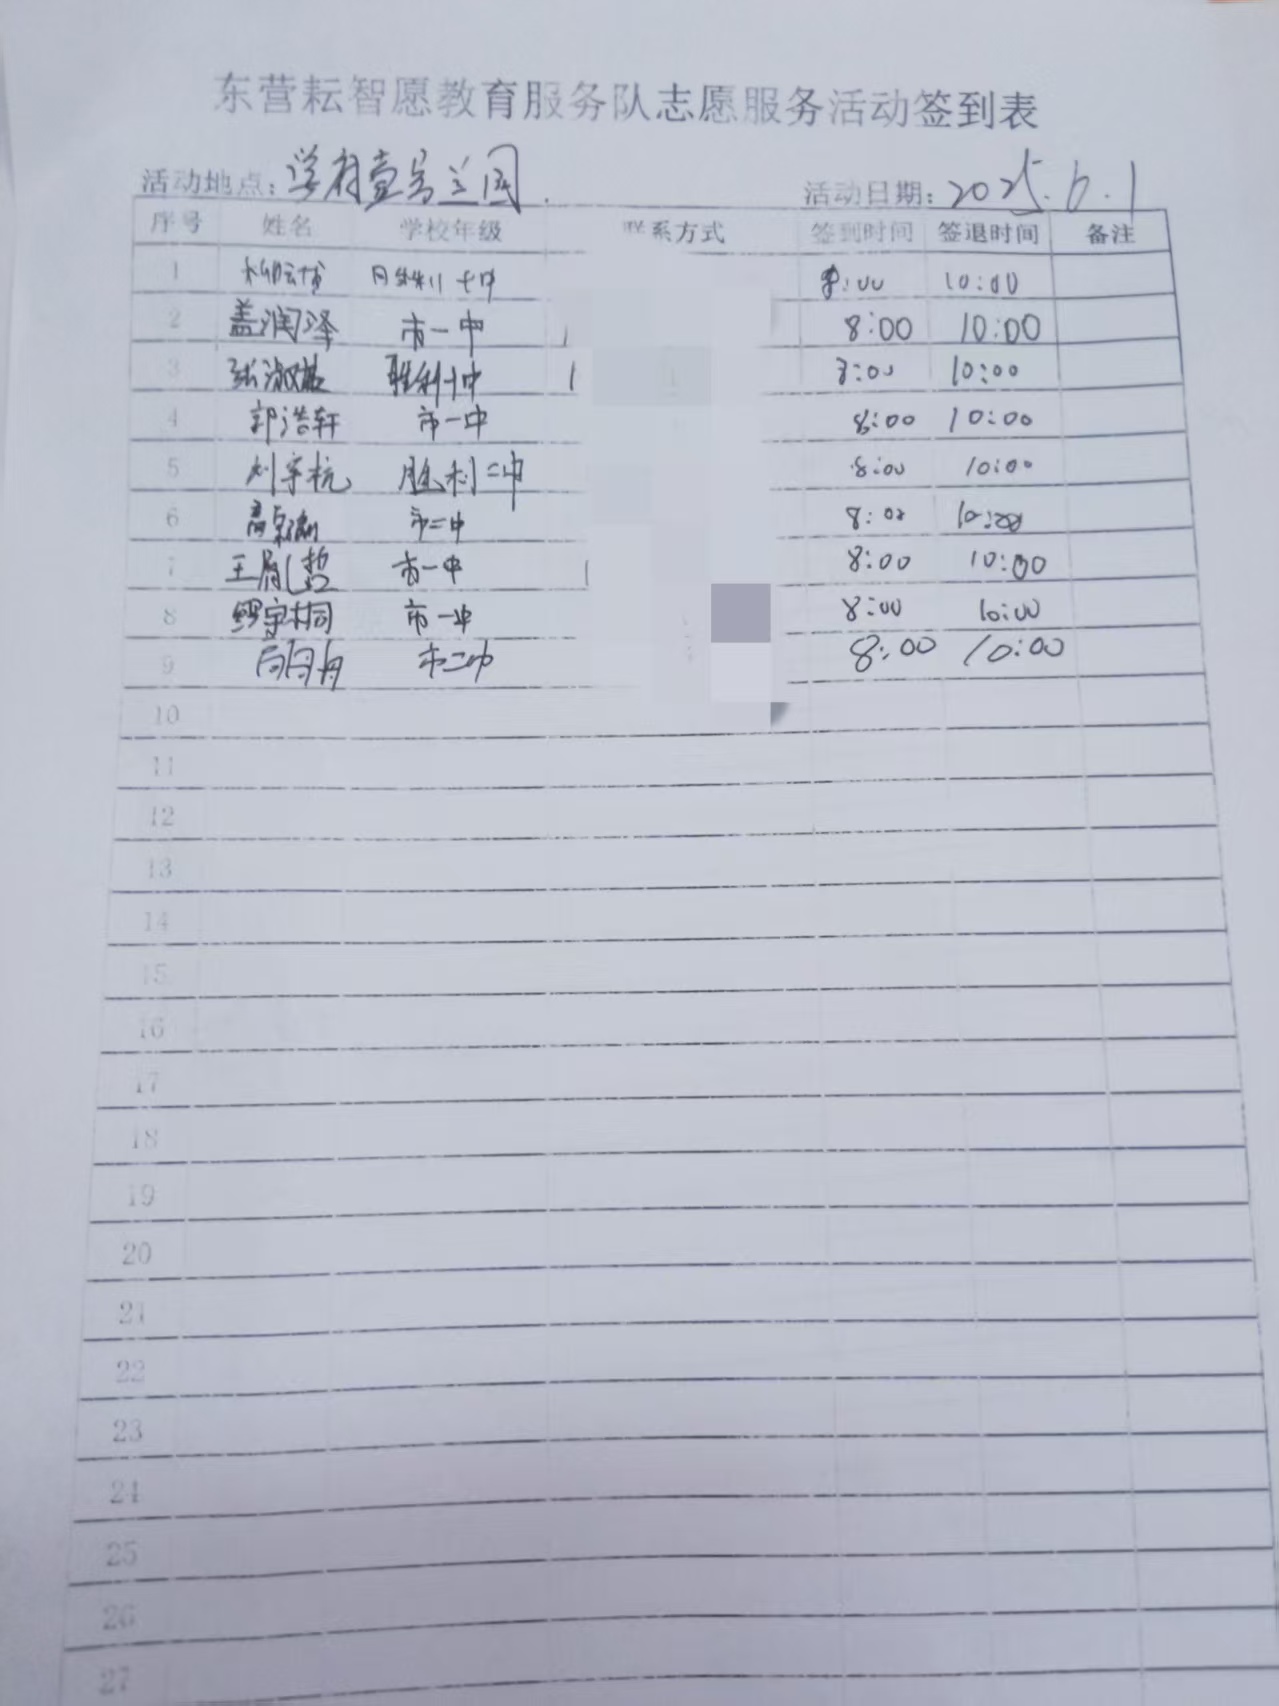 东营耘智愿教育服务队志愿服务活动签到表
活动地点：学府壹号兰园 活动日期：2025.6.1
序号 姓名 学校年级 联系方式 签到时间 签退时间 备注
1 胜利十中 8:00 10:00
2 盖润泽 市一中 8:00 10:00
3 张淑 胜利十中 8:00 10:00
4 郭浩轩 市一中 8:00 10:00
5 刘宇杭 胜利二中 8:00 10:00
6 高 市二中 8:00 10:00
7 王 哲 市一中 8:00 10:00
8 缪宇桐 市一中 8:00 10:00
9 市二中 8:00 10:00
10
11
12
13
14
15
16
17
18
19
20
21
22
23
24
25
26
27